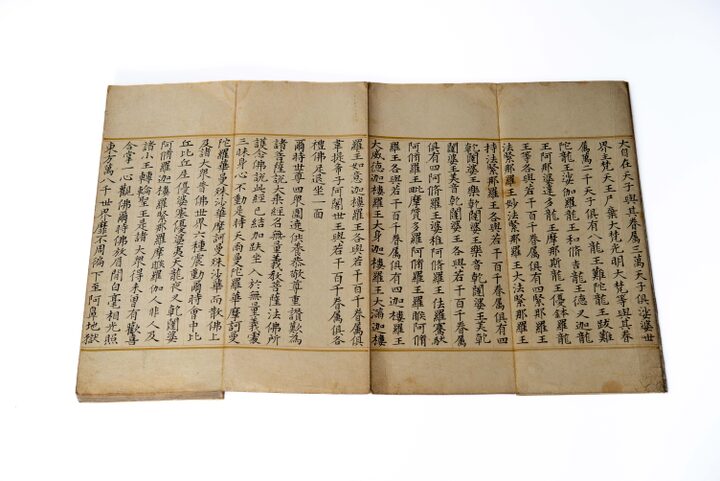 大自在天子與其眷屬三萬天子俱娑婆世
界主梵天王尸棄大梵光明大梵等與其眷
屬萬二千天子俱有八龍王難陀龍王跋難
陀龍王娑伽羅龍王和脩吉龍王德叉伽龍
王阿那婆達多龍王摩那斯龍王優鉢羅龍
王等各與若干百千眷屬俱有四緊那羅王
法緊那羅王妙法緊那羅王大法緊那羅王
持法緊那羅王各與若干百千眷屬俱有四
乾闥婆王樂乾闥婆王樂音乾闥婆王美乾
闥婆王美音乾闥婆王各與若干百千眷屬
俱有四阿脩羅王婆稚阿脩羅王佉羅騫馱
阿脩羅王毗摩質多羅阿脩羅王羅睺阿脩
羅王各與若干百千眷屬俱有四伽樓羅王
大威德伽樓羅王大身伽樓羅王大滿伽樓
羅王如意伽樓羅王各與若干百千眷屬俱
韋提希子阿闍世王與若干百千眷屬俱各
禮佛足退坐一面
爾時世尊四眾圍遶供養恭敬尊重讚歎為
諸菩薩說大乘經名無量義教菩薩法佛所
護念佛說此經已結加趺坐入於無量義處
三昧身心不動是時天雨曼陀羅華摩訶曼
陀羅華曼殊沙華摩訶曼殊沙華而散佛上
及諸大眾普佛世界六種震動爾時會中比
丘比丘尼優婆塞優婆夷天龍夜叉乾闥婆
阿脩羅伽樓羅緊那羅摩睺羅伽人非人及
諸小王轉輪聖王是諸大眾得未曾有歡喜
合掌一心觀佛爾時佛放眉間白毫相光照
東方萬八千世界靡不周徧下至阿鼻地獄